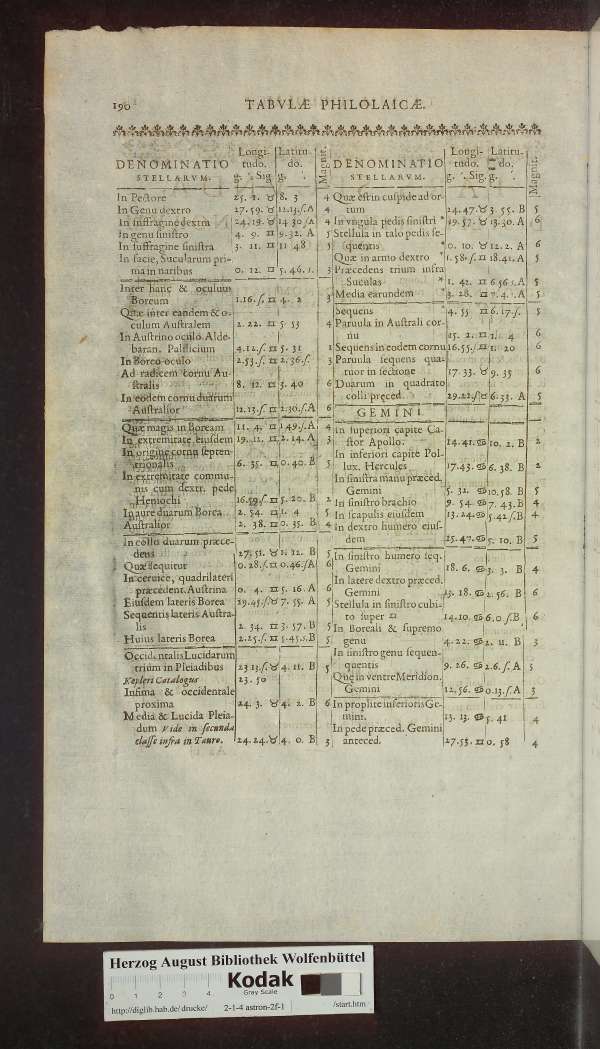 190
TABVLÆ PHILOLAICÆ.
DENOMINATIO
STELLARVM.
Longi-
tudo.
g. ′. Sig
Latitu-
do.
g. ′.
Magnit.
In Pectore 25. 1. ♉ 8. 3 4
In Genu dextro 27. 59. ♉ 12.13.ſ.A 4
In suffragine dextra 24. 19. ♉ 14 30 ſ A 4
In genu sinistro 4. 9. ♊ 9. 32. A 5
In suffragine sinistra 3. 11. ♊ 11 48 5
In facie, Sucularum pri-
ma in naribus 0. 12. ♊ 5. 46. 3
Inter hanc & oculum
Boreum 1.16.ſ. ♊ 4. 2 3
Quæ inter eandem & o-
culum Australem 2. 22. ♊ 5 53 4
In Austrino oculo Alde-
baran. Palilicium 4.12.ſ ♊ 5. 31 1
In Boreo oculo 2.53.ſ. ♊ 2.36.ſ. 3
Ad radicem cornu Au-
stralis 8. 12. ♊ 3. 40 6
In eodem cornu duarum
Australior 12.13.ſ ♊ 2.30.ſ.A 6
Quæ magis in Boream 11. 4. ♊ 1 49.ſ.A. 4
In extremitate eiusdem 19. 11. ♊ 2. 14. A 3
In origine cornu septen-
trionalis 6. 35. ♊ 0. 40. B 5
In extremitate commu-
nis cum dextr. pede
Heniochi 16.59.ſ ♊ 5. 20. B 2
In aure duarum Borea 2. 54. ♊ 1. 4 5
Australior 2. 38. ♊ 0. 35. B 4
In collo duarum præce-
dens 27. 51. ♉ 1. 12. B 5
Quæ sequitur 0. 28.ſ. ♊ 0.46.ſ A 6
In ceruice, quadrilateri
præcedent. Austrina 0. 4. ♊ 5. 16. A 6
Eiusdem lateris Borea 29.45.ſ. ♉ 7. 55. A 5
Sequentis lateris Austra-
lis 2. 34. ♊ 3. 57. B 5
Huius lateris Borea 2.25.ſ. ♊ 5.45.s.B 5
Occidentalis Lucidarum
trium in Pleiadibus 23 13.ſ. ♉ 4. 11. B 5
Kepleri Catalogus 23. 50
Infima & occidentale
proxima 24. 3. ♉ 4. 2. B 6
Media & Lucida Pleia-
dum Vide in secunda
classe infra in Tauro. 24. 24. ♉ 4. 0. B 3
DENOMINATIO
STELLARVM.
Longi-
tudo.
g. ′. Sig
Latitu-
do.
g. ′.
Magnit.
Quæ est in cuspide ad or-
tum 24. 47. ♉ 3. 55. B 5
In vngula pedis sinistri * 19. 57. ♉ 13.30. A 6
Stellula in talo pedis se-
quentis * 0. 10. ♉ 12. 2. A 6
Quæ in armo dextro * 1. 58.ſ. ♊ 18.41. A 5
Præcedens trium infra
Suculas * 1. 42. ♊ 6 56 s.A 5
Media earundem * 3. 28. ♊ 7. 4. s.A 5
Sequens * 4. 55 ♊ 6. 17.ſ. 5
Paruula in Australi cor-
nu 15. 2. ♊ 1. 4 6
Sequens in eodem cornu 16.55.ſ ♊ 1. 20 6
Paruula sequens qua-
tuor in sectione 17. 33. ♉ 9. 35 6
Duarum in quadrato
colli præced. 29.22.ſ ♉ 6. 33. A 5
GEMINI.
In superiori capite Ca-
stor Apollo. 14. 41. ♋ 10. 2. B 2
In inferiori capite Pol-
lux. Hercules 17. 43. ♋ 6. 38. B 2
In sinistra manu præced.
Gemini 5. 32. ♋ 10. 58. B 5
In sinistro brachio 9. 54. ♋ 7. 43. B 4
In scapulis eiusdem 13. 24. ♋ 5.42.ſ B 4
In dextro humero eius-
dem 25. 47. ♋ 5. 10. B 5
In sinistro humero seq.
Gemini 18. 6. ♋ 3. 3. B 4
In latere dextro præced.
Gemini 13. 18. ♋ 2. 56. B 6
Stellula in sinistro cubi-
to super 14. 10. ♋ 6.0 ſ.B 6
In Boreali & supremo
genu 4. 22. ♋ 2. 11. B 3
In sinistro genu sequen-
quentis 9. 26. ♋ 2. 6.ſ. A 5
Quæ in ventre Meridion.
Gemini 12. 56. ♋ 0.13.ſ.A 3
In poplite inferioris Ge-
mini. 13. 13. ♋ 5. 41 4
In pede præced. Gemini
anteced. 27. 53. ♊ 0. 58 4
Herzog August Bibliothek Wolfenbüttel
Kodak
Gray Scale
0 1 2 3 4
http://diglib.hab.de/drucke/ 2-1-4-astron-2f-1 /start.htm